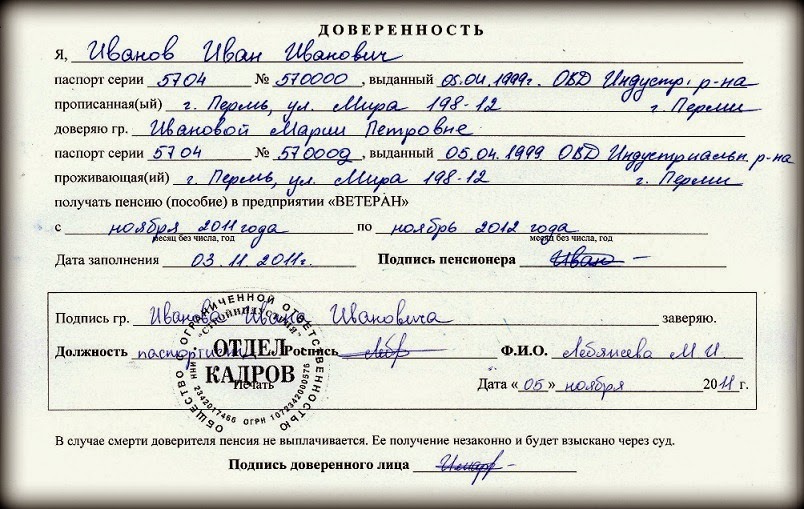 ДОВЕРЕННОСТЬ
Я, Иванов Иван Иванович
паспорт серии 5704 № 570000, выданный 05.04.1999г. ОВД Индустр. р-на
прописанная(ый) г. Пермь, ул. Мира 198-12 г. Перми
доверяю гр. Ивановой Марии Петровне
паспорт серии 5704 № 570002, выданный 05.04.1999 ОВД Индустриальн. р-на
проживающая(ий) г. Пермь, ул. Мира 198-12 г. Перми
получать пенсию (пособие) в предприятии «ВЕТЕРАН»
с ноября 2011 года по ноябрь 2012 года
месяц без числа, год месяц без числа, год
Дата заполнения 03.11.2011г. Подпись пенсионера Иван
Подпись гр. Иванова Ивана Ивановича заверяю.
Должность паспортист Роспись Ф.И.О. М И
Печать Дата «05» ноября 2011 г.
ОБЩЕСТВО С ОГРАНИЧЕННОЙ ОТВЕТСТВЕННОСТЬЮ
"СТРОЙИНДУСТРИЯ"
ОТДЕЛ
КАДРОВ
ИНН 2342017466 ОГРН 1072342000576
В случае смерти доверителя пенсия не выплачивается. Ее получение незаконно и будет взыскано через суд.
Подпись доверенного лица